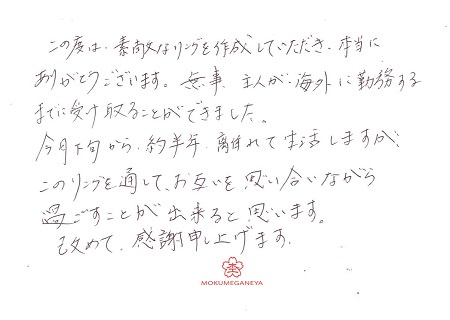 この度は、素敵なリングを作成していただき、本当に
ありがとうございます。無事、主人が海外に勤務する
までに受け取ることができました。
今月下旬から、約半年、離れて生活しますが、
このリングを通して、お互いを思い合いながら
過ごすことが出来ると思います。
改めて、感謝申し上げます。
MOKUMEGANEYA